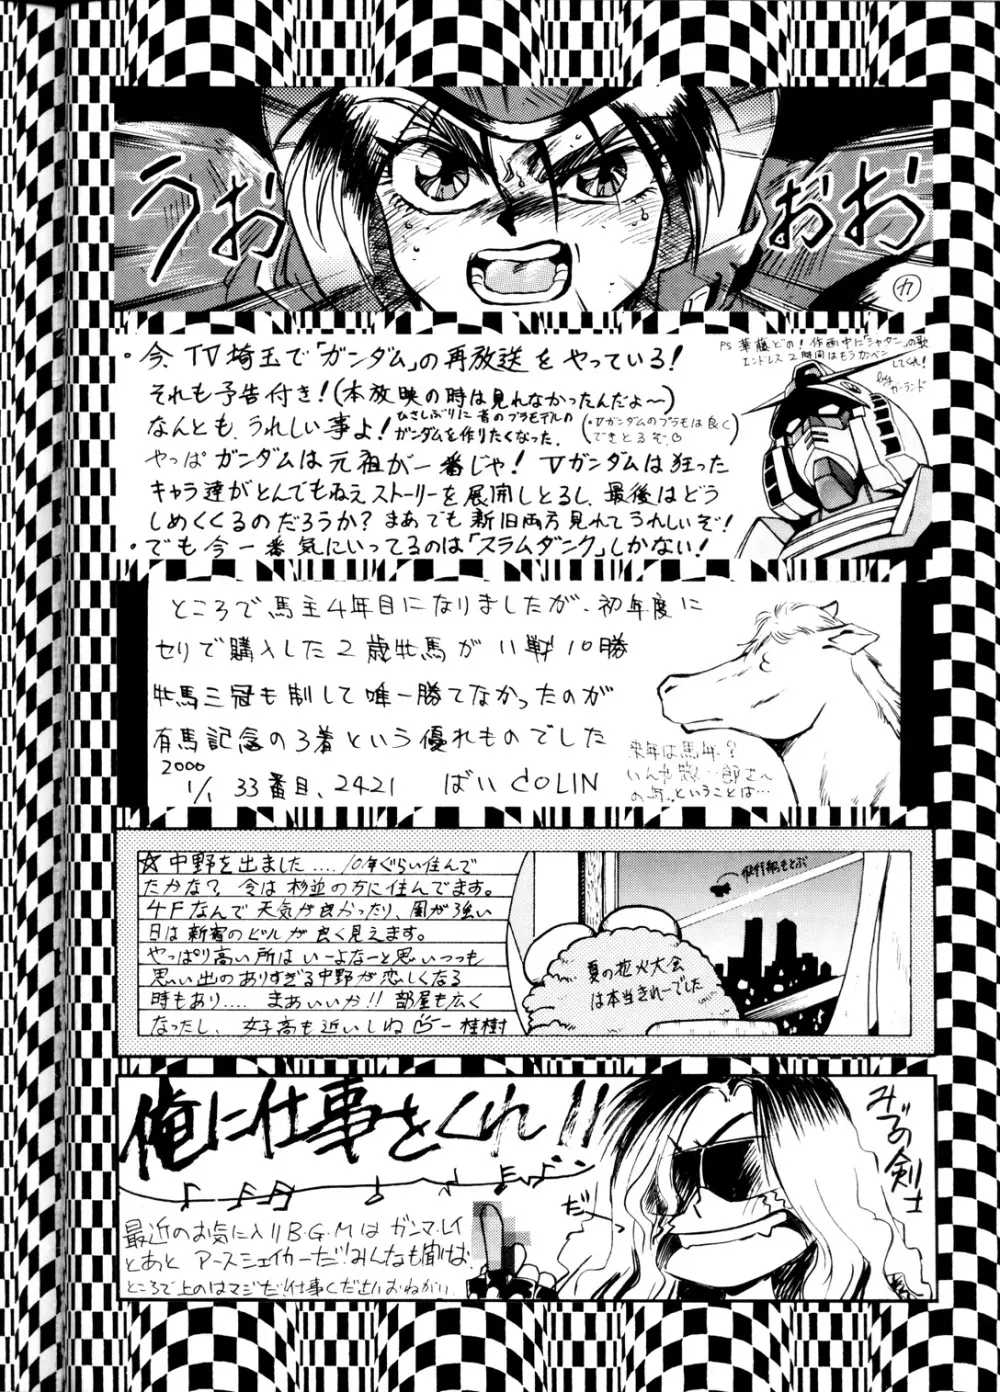 うおお
おおお
カ
・今、TV埼玉で「ガンダム」の再放送をやっている!
それも予告付き!(本放映の時は見れなかったんだよ〜)
なんとも、うれしい事よ!
ひさしぶりに昔のプラモデルの
ガンダムを作りたくなった。
(・Vガンダムのプラモは良く
できとるぞ。)
やっぱガンダムは元祖が一番じゃ! Vガンダムは狂った
キャラ達がとんでもねえストーリーを展開しとるし、最後はどう
しめくくるのだろうか?まあでも新旧両方見れてうれしいぞ!
・でも今一番気にいってるのは「スラムダンク」しかない!
PS 華藤どの!作画中に「シャタン」の歌
エンドレス2時間はもうカンベン
してくれ!
by ガーランド
ところで馬主4年目になりましたが、初年度に
セリで購入した2歳牝馬が11戦10勝
牝馬三冠も制して唯一勝てなかったのが
有馬記念の3着という優れものでした
2000
1/1 33番目、2421 ばい COLIN
来年は馬年?
の年。ということは…
☆中野を出ました....10年ぐらい住んで
たかな?今は杉並の方に住んでます。
4Fなんで天気が良かったり、風が強い
日は新宿のビルが良く見えます。
やっぱり高い所はいーよなーと思いつつも
思い出のありすぎる中野が恋しくなる
時もあり....まあいいか!!部屋も広く
なったし、女子高も近いしね ー桂樹
夏の花火大会
は本当きれーでした
俺に仕事をくれ!!
みづの剣士
だーっ
最近のお気に入りB・G・Mはガンマ・レイ
とあとアースシェイカーだ!みんなも聞けば。
ところで上のはマジだ!仕事くださいおねがい